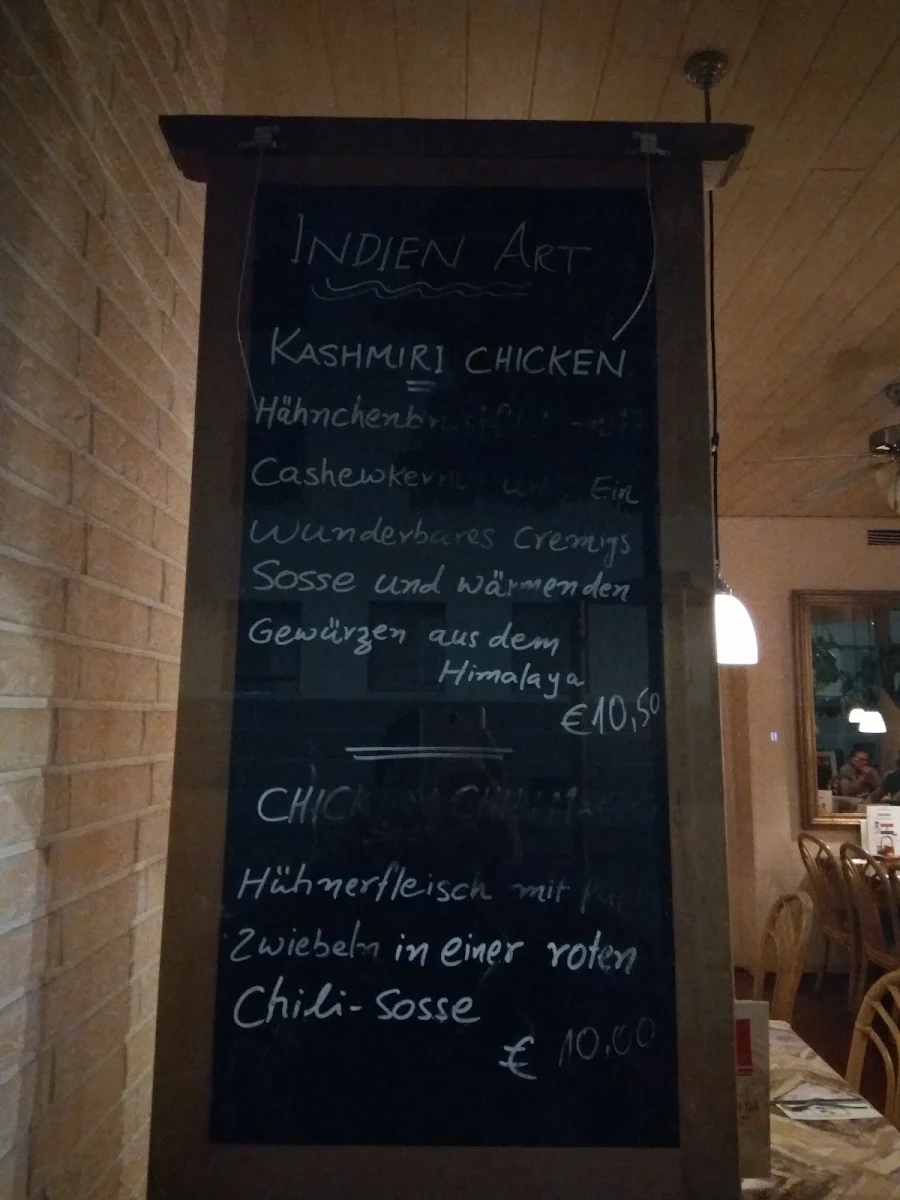 INDIEN ART
KASHMIRI CHICKEN
Cashewkernen und Ein
Wunderbares Cremigs
Sosse und wärmenden
Gewürzen aus dem
Himalaya
€10,50
CHICKEN
Hühnerfleisch mit
Zwiebeln in einer roten
Chili-Sosse
€ 10,00